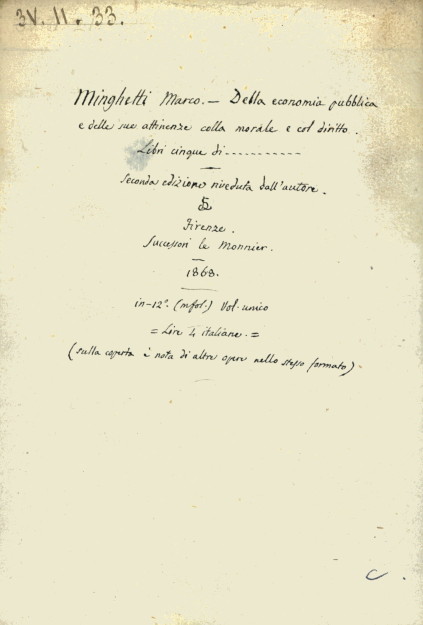 3V. 11. 33.
Minghetti Marco. — Della economia pubblica
e delle sue attinenze colla morale e col diritto.
Libri cinque di-----------
Seconda edizione riveduta dall'autore.
Firenze.
Successori le Monnier.
1868.
in-12º. (mfol.) Vol. unico
= Lire 4 italiane. =
(sulla coperta è nota di altre opere nello stesso formato).
C.